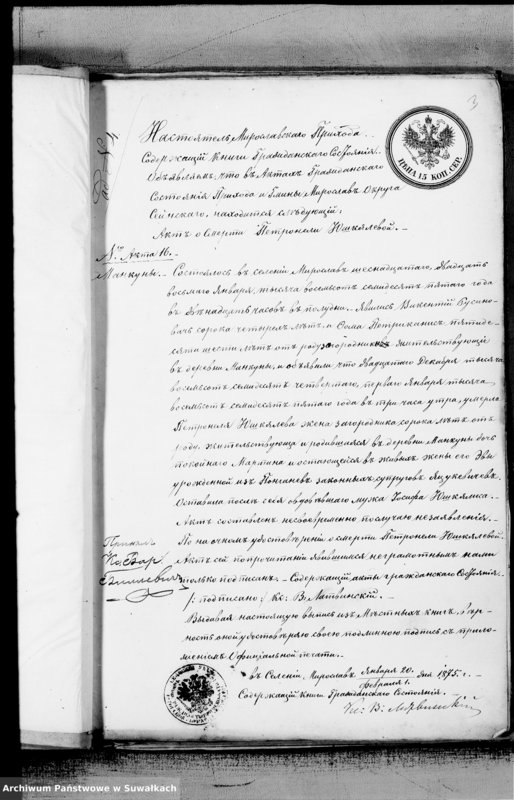 3
Настоятель Мирославскаго Прихода
Содержащій Книги Гражданскаго Состоянія.
Объявляетъ, что въ Актахъ Гражданскаго
Состоянія Прихода и Гмины Мирославъ Округа
Сейнскаго, находится слѣдующій:
Актъ о Смерти Петронели Юшкялевой. –
ЦѢНА 15 КОП. СЕР.
№ Акта 16. –
Манкуны. – Состоялось въ селеніи Мирославъ шеснадцатаго, двадцать
восьмаго Января, тысяча восемьсотъ семьдесятъ пятаго года
въ двѣнадцать часовъ въ полудни. – Явились Викентій Русино-
вачь сорока четырехъ лѣтъ, и Сома Петриканисъ пятиде-
сяти шести лѣтъ отъ роду загородники жительствующій
въ деревни Манкуны, и объявили что двадцатаго Декабря тысяча
восемьсотъ семьдесятъ четвертаго, перваго Января тысяча
восемьсотъ семьдесятъ пятаго года въ три часа утра, умерла
Петронеля Юшкялева жена загородника сорока лѣтъ отъ
роду, жительствующа и родившаяся въ деревни Манкуны дочь
покойнаго Мартина и остающейся въ живыхъ жены его Эвы
урожденной изъ законныхъ супруговъ Яцукевичевъ.
Оставила послѣ себя овдовѣвшаго мужа Іосифа Юшкялиса. –
Актъ составленъ несвоевременно по случаю незаявленія. –
По на очномъ удостовѣреніи о смерти Петронели Юшкялевой.
Актъ сей по прочитаніи явившимся неграмотнымъ нами
только подписанъ. – Содержащій акты гражданскаго Состоянія.
/: подписано :/ Кс: В. Матвинскій. –
Выдавая настоящую выпись изъ Мѣстныхъ книгъ, вѣр-
ность оной удостовѣряю своею подлинною подпись съ прило-
женіемъ Оффиціальной печати. –
въ Селеніи Мирославъ Января 20. / Февраля 1. дня 1875. г. –
Содержащій Книги Гражданскаго Состоянія.
Кс: В:
Archiwum Państwowe w Suwałkach